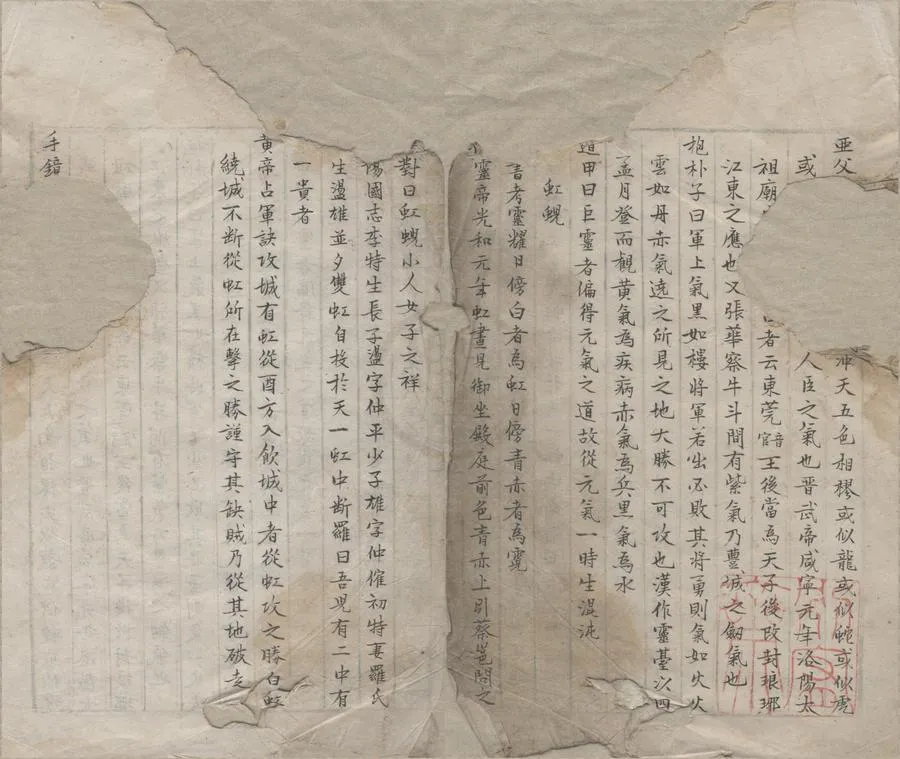 亞父冲天五色相樛或似龍或似蛇或似虎
或人臣之氣也晋武帝咸寧元年洛陽太
祖廟者云東莞音官王後當為天子後改封琅琊
江東之應也又張華察牛斗間有紫氣乃豐城之劒氣也
抱朴子曰軍上氣黑如樓將軍若出必敗其將勇則氣如火火
雲如丹赤氣遶之所見之地大勝不可攻也漢作靈臺以四
孟月登而觀黄氣為疾病赤氣為兵黑氣為水
遁甲曰巨靈者偏得元氣之道故從元氣一時生混沌
虹蜺
青者靈耀日傍白者為虹日傍青赤者為霓
靈帝光和元年虹晝見御坐殿庭前色青赤上引蔡邕問之
對曰虹蜺小人女子之祥
陽國志李特生長子盪字仲平少子雄字仲傕初特妻羅氏
生盪雄並夕雙虹自投於天一虹中断羅曰吾児有二中有
一貴者
黄帝占軍訣攻城有虹從酉方入飲城中者從虹攻之勝白虹
繞城不断從虹所在擊之勝謹守其缺賊乃從其地破走
手鐕